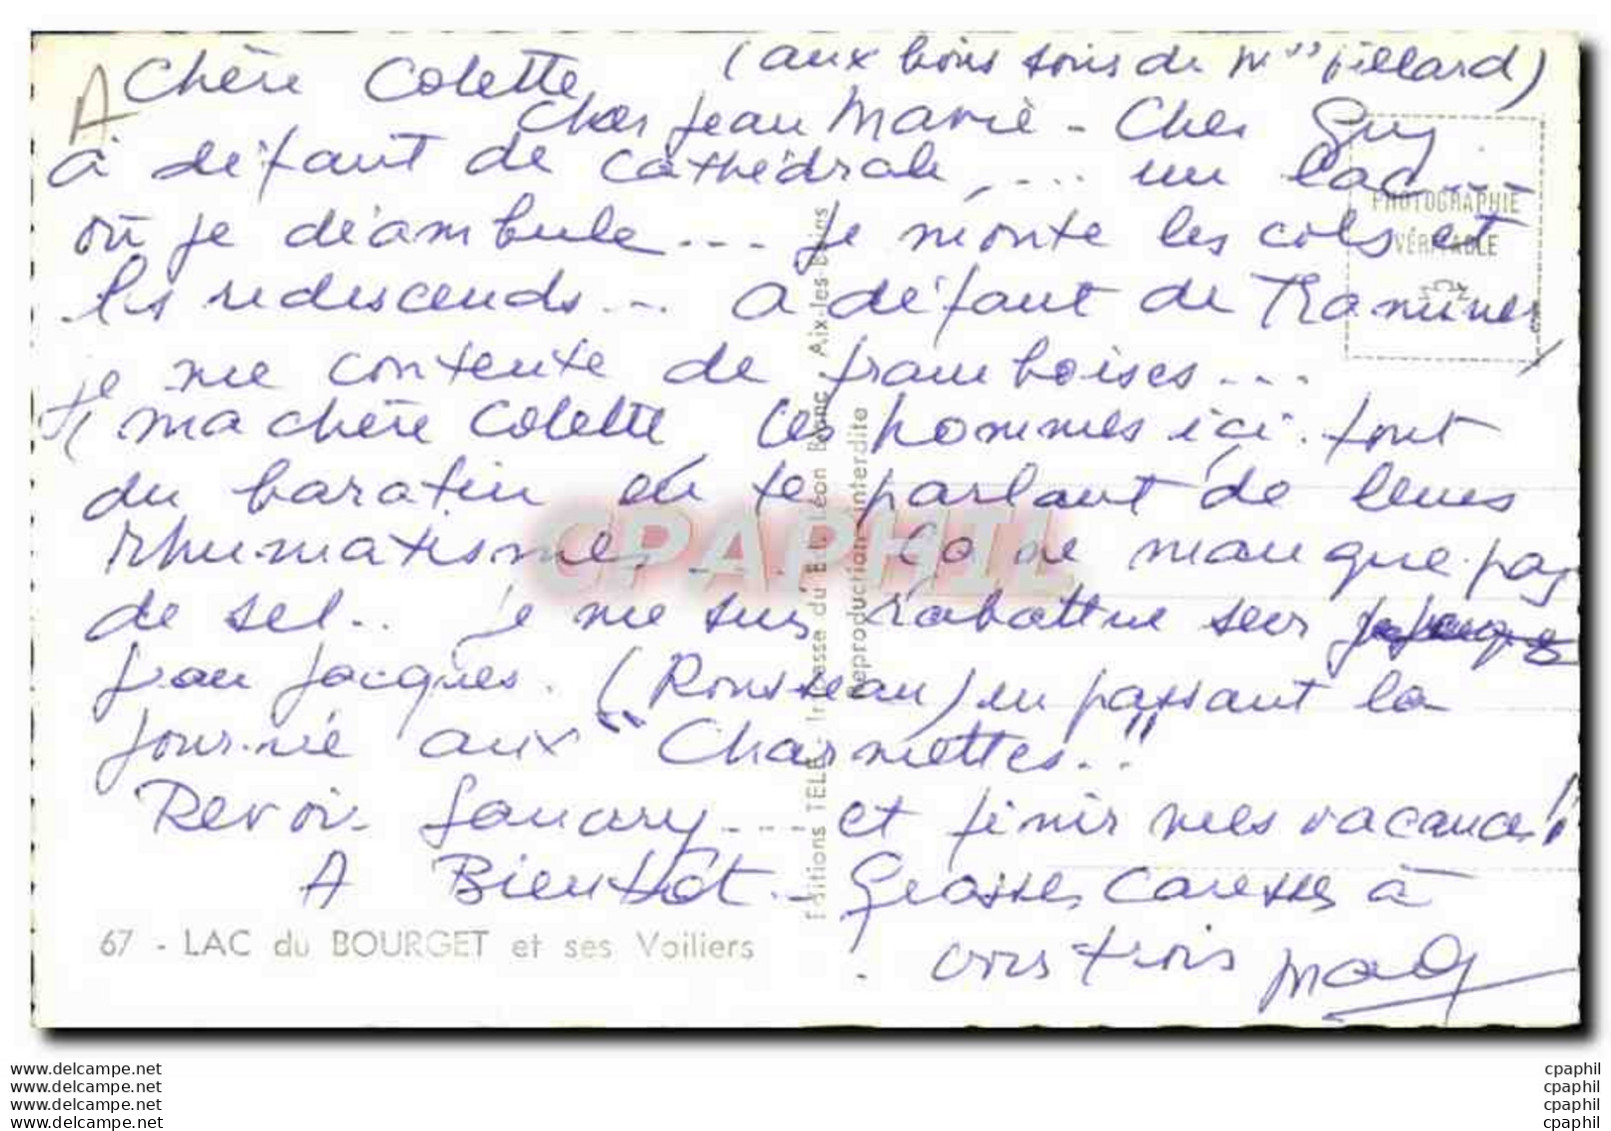 A
Chère Colette (aux bons soins de Mme Villard)
Cher Jean Marie - Cher Guy
à défaut de Cathédrale, ... un lac...
PHOTOGRAPHIE
VÉRITABLE
où je déambule... Je monte les cols et
les redescends... A défaut de
je me contente de framboises...
ma chère Colette les hommes ici font
du baratin en te parlant de leurs
rhumatismes... ça ne manque pas
de sel.. je me suis rabattue sur
Jean Jacques. (Rousseau) en passant la
journée aux "Charmettes.."
Revoir Sanary... et finir mes vacances!!
A Bientôt - Grosses Caresses à
vous trois Mady
67 - LAC du BOURGET et ses Voiliers
Editions TELE - Impasse du Bt. Léon Blanc, Aix-les-Bains
Reproduction interdite
CPAPHIL
www.delcampe.net
www.delcampe.net
www.delcampe.net
www.delcampe.net
cpaphil
cpaphil
cpaphil
cpaphil